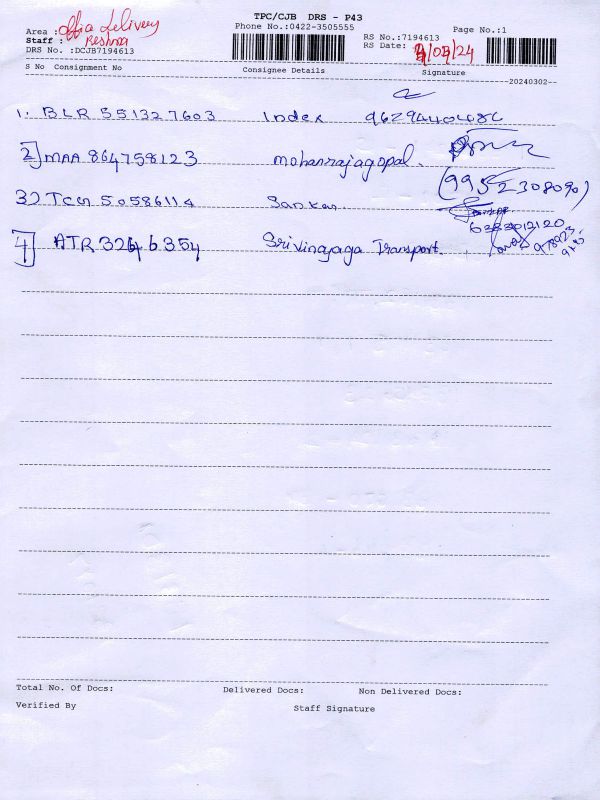 TPC/CJB DRS - P43
Phone No.:0422-3505555
Page No.:1
RS No.:7194613
RS Date: /24
Area : Office Delivery
Staff : Reshma
DRS No. :DCJB7194613
S No Consignment No Consignee Details Signature
20240302
1. BLR 551327603 Index
2] MAA 864758123 mohanrajagopal. (9952308090)
3] TCN 50586114 Sankar 6383012120
4] ATR 32646354 Srivinayaga Transport.
Total No. Of Docs: Delivered Docs: Non Delivered Docs:
Verified By Staff Signature